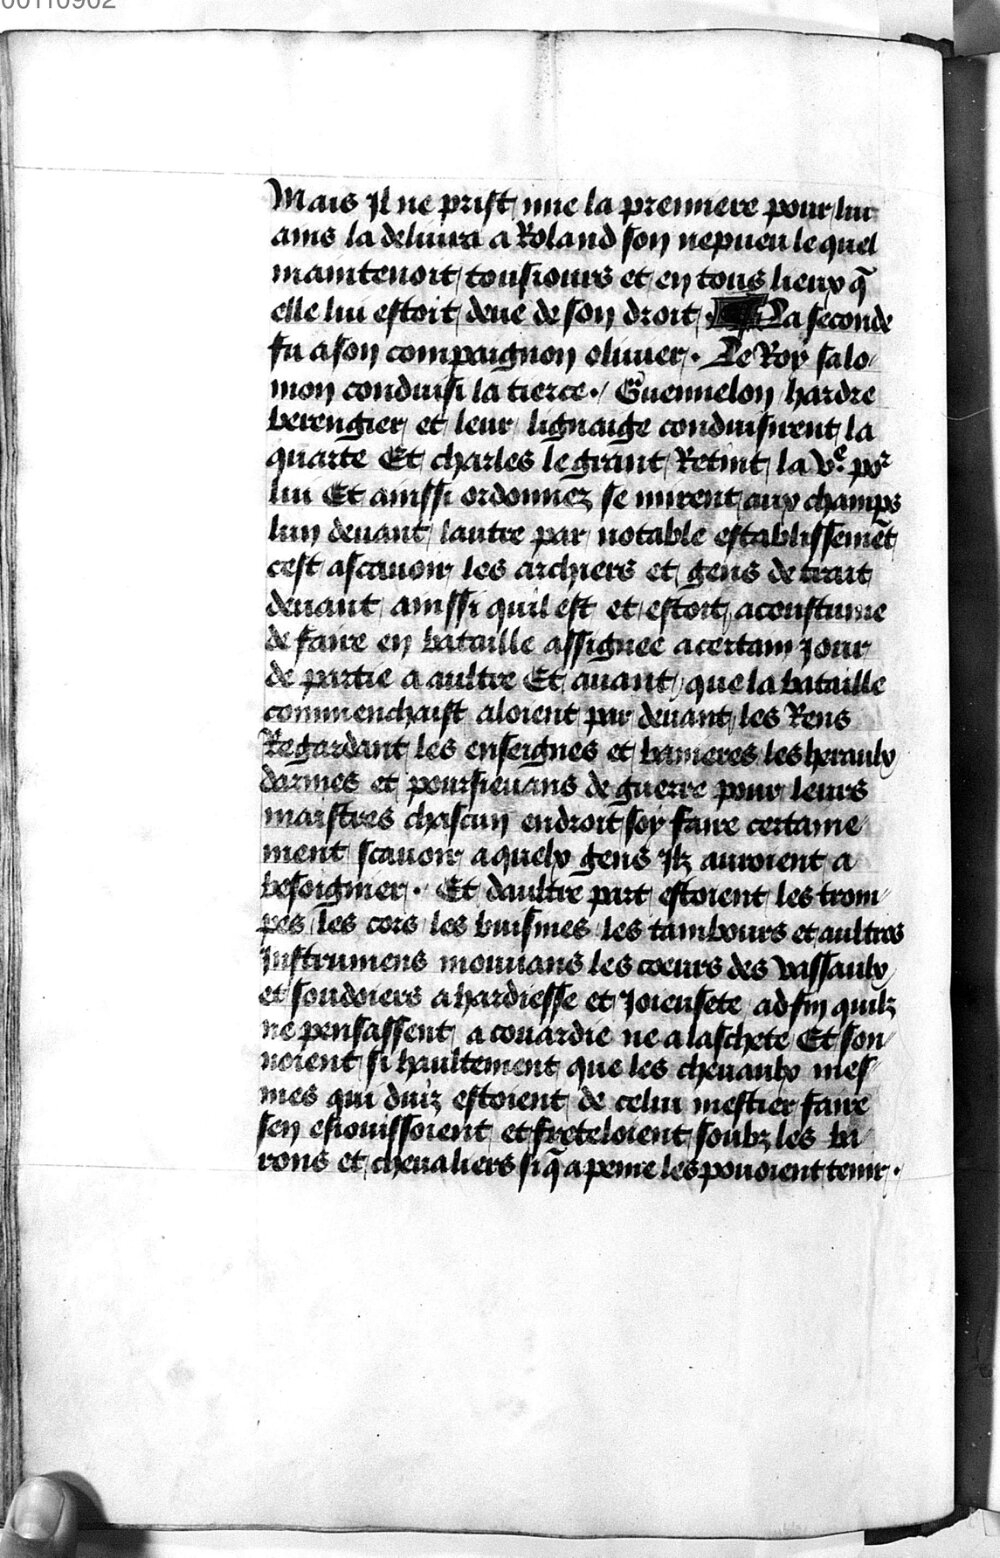 00110902
Mais Il ne prist mie la premiere pour lui
ains la deliura a Roland son nepueu le quel
maintenoit tousiours et en tous lieux q̄
elle lui estoit deue de son droit . La seconde
fu a son compaignon oliuier . Le Roy salo-
mon conduisi la tierce . Guennelon hardre
berengier et leur lignaige conduisirent la
quarte Et charles le grant Retint la ve. por
lui Et ainssi ordonnez se mirent aux champs
lun deuant lautre par notable establissemēt
cest ascauoir les archiers et gens de trait
deuant ainssi quil est et estoit acoustume
de faire en bataille assignee a certain Jour
de partie a aultre Et auant que la bataille
commenchaist aloient par deuant les Rens
Regardant les enseignes et banieres les heraulx
darmes et poursieuans de guerre pour leurs
maistres chascun endroit soy faire certaine-
ment scauoir a quelx gens Ilz auroient a
besoignier . Et daultre part estoient les trom-
pes les cors les buisines les tambours et aultres
Instrumens mouuans les coeurs des vassaulx
et soudoiers a hardiesse et Joieusete adfin quilz
ne pensassent a couardie ne a laschete Et son-
noient si haultement que les cheuaulx mes-
mes qui duiz estoient de celui mestier faire
sen esiouissoient et freteloient soubz les ba-
rons et cheualiers si q̄ a peine les pouoient tenir .